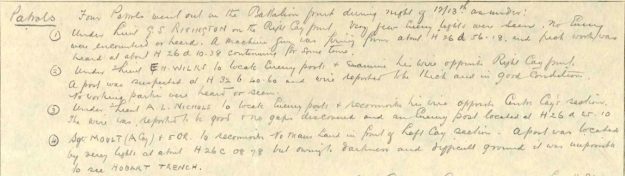 Patrols Four Patrols went out on the Battalion front during night of 12/13th as under:
① Under Lieut G S RIVINGTON on the Right Coy front. Very few enemy lights were seen. No Enemy
was encountered or heard. A machine gun was firing from about H 26 d 56.18, and pick work was
heard at about H 26 d 10.38 continuing for some time.
② Under Lieut E H WILKS to locate Enemy posts & examine his wire opposite Right Coy front.
A post was suspected at H 32 b 60.60 and wire reported to be thick and in good Condition
No working parties were heard or seen.
③ Under Lieut A. L. NICHOLS to locate Enemy posts & reconnoitre his wire opposite Centre Coy's section.
The wire was reported to be good & no gaps discovered and an Enemy post located at H 26 d 25.10
④ Sgt MOULT (A Coy) & 5 O.R. to reconnoitre No Mans Land in front of Left Coy section. A post was located
by very lights at about H 26 C 08 98 but owing to darkness and difficult ground it was impossible
to see HOBART TRENCH.